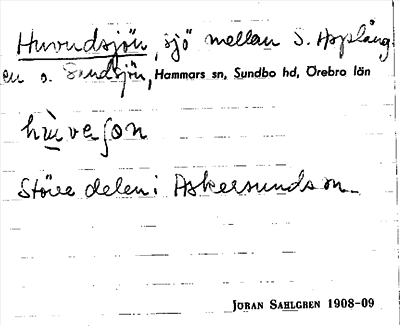 Huvudsjön, sjö mellan S. Applång-
en o. Sundsjön, Hammars sn, Sundbo hd, Örebro län
hùveʃon
Större delen i Askersunds sn.
JÖRAN SAHLGREN 1908-09